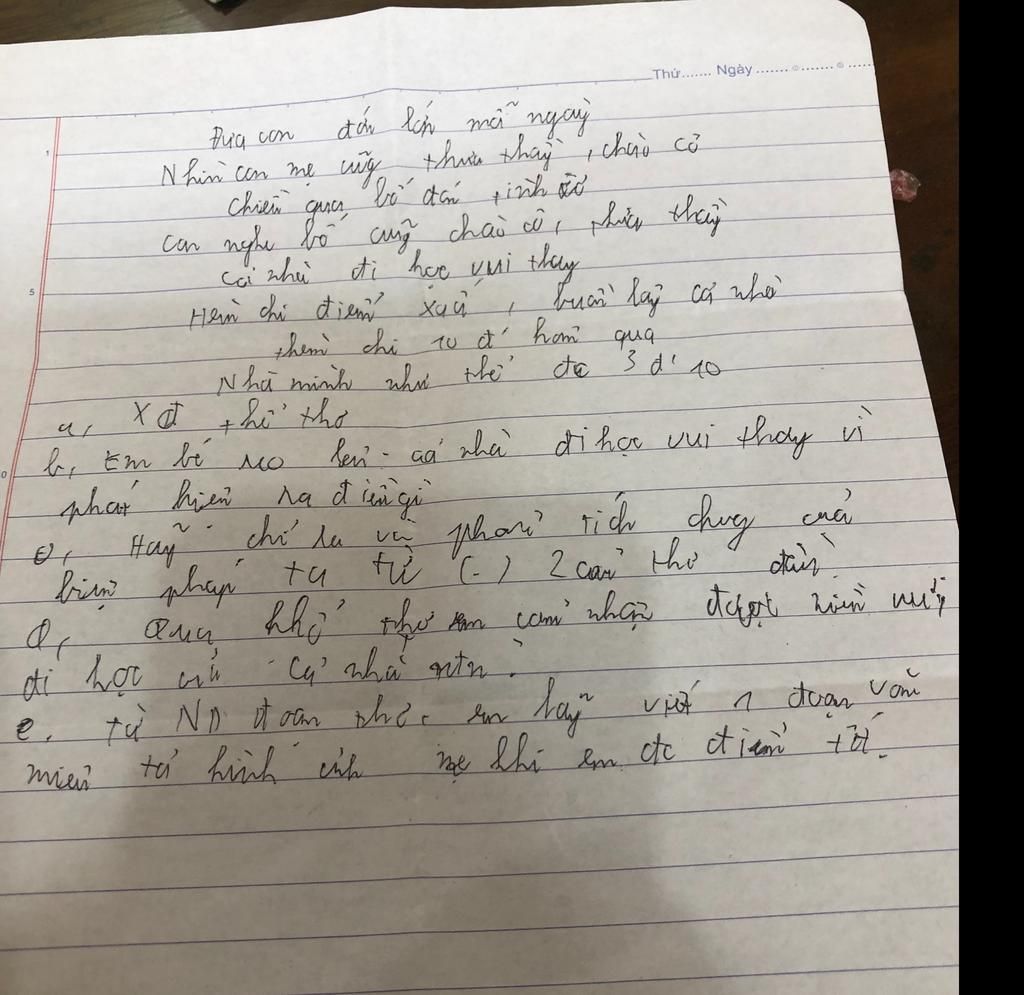 Thứ....... Ngày
Đưa con đến lớp mỗi ngày
Nhìn con mẹ cũng thưa thầy, chào cô
Chiều qua bố đón
Con nghe bố cũng chào cô, thưa thầy
Cả nhà đi học vui thay
Hèn chi điểm xấu, buồn lây cả nhà
hèn chi 10 đỏ hôm qua
Nhà mình như thể đc 3 đ' 10
a, XĐ thể thơ
b, Em bé reo lên: cả nhà đi học vui thay vì
phát hiện ra điều gì
Hãy chỉ ra và phân tích của
biện pháp tu từ (-) 2 câu thơ đầu
Qua khổ thơ em cảm nhận được niềm vui
đi học của cả nhà ntn?
e. từ ND đoạn thơ, em hãy viết 1 đoạn văn
miêu tả hình ảnh mẹ khi em đc điểm tốt.